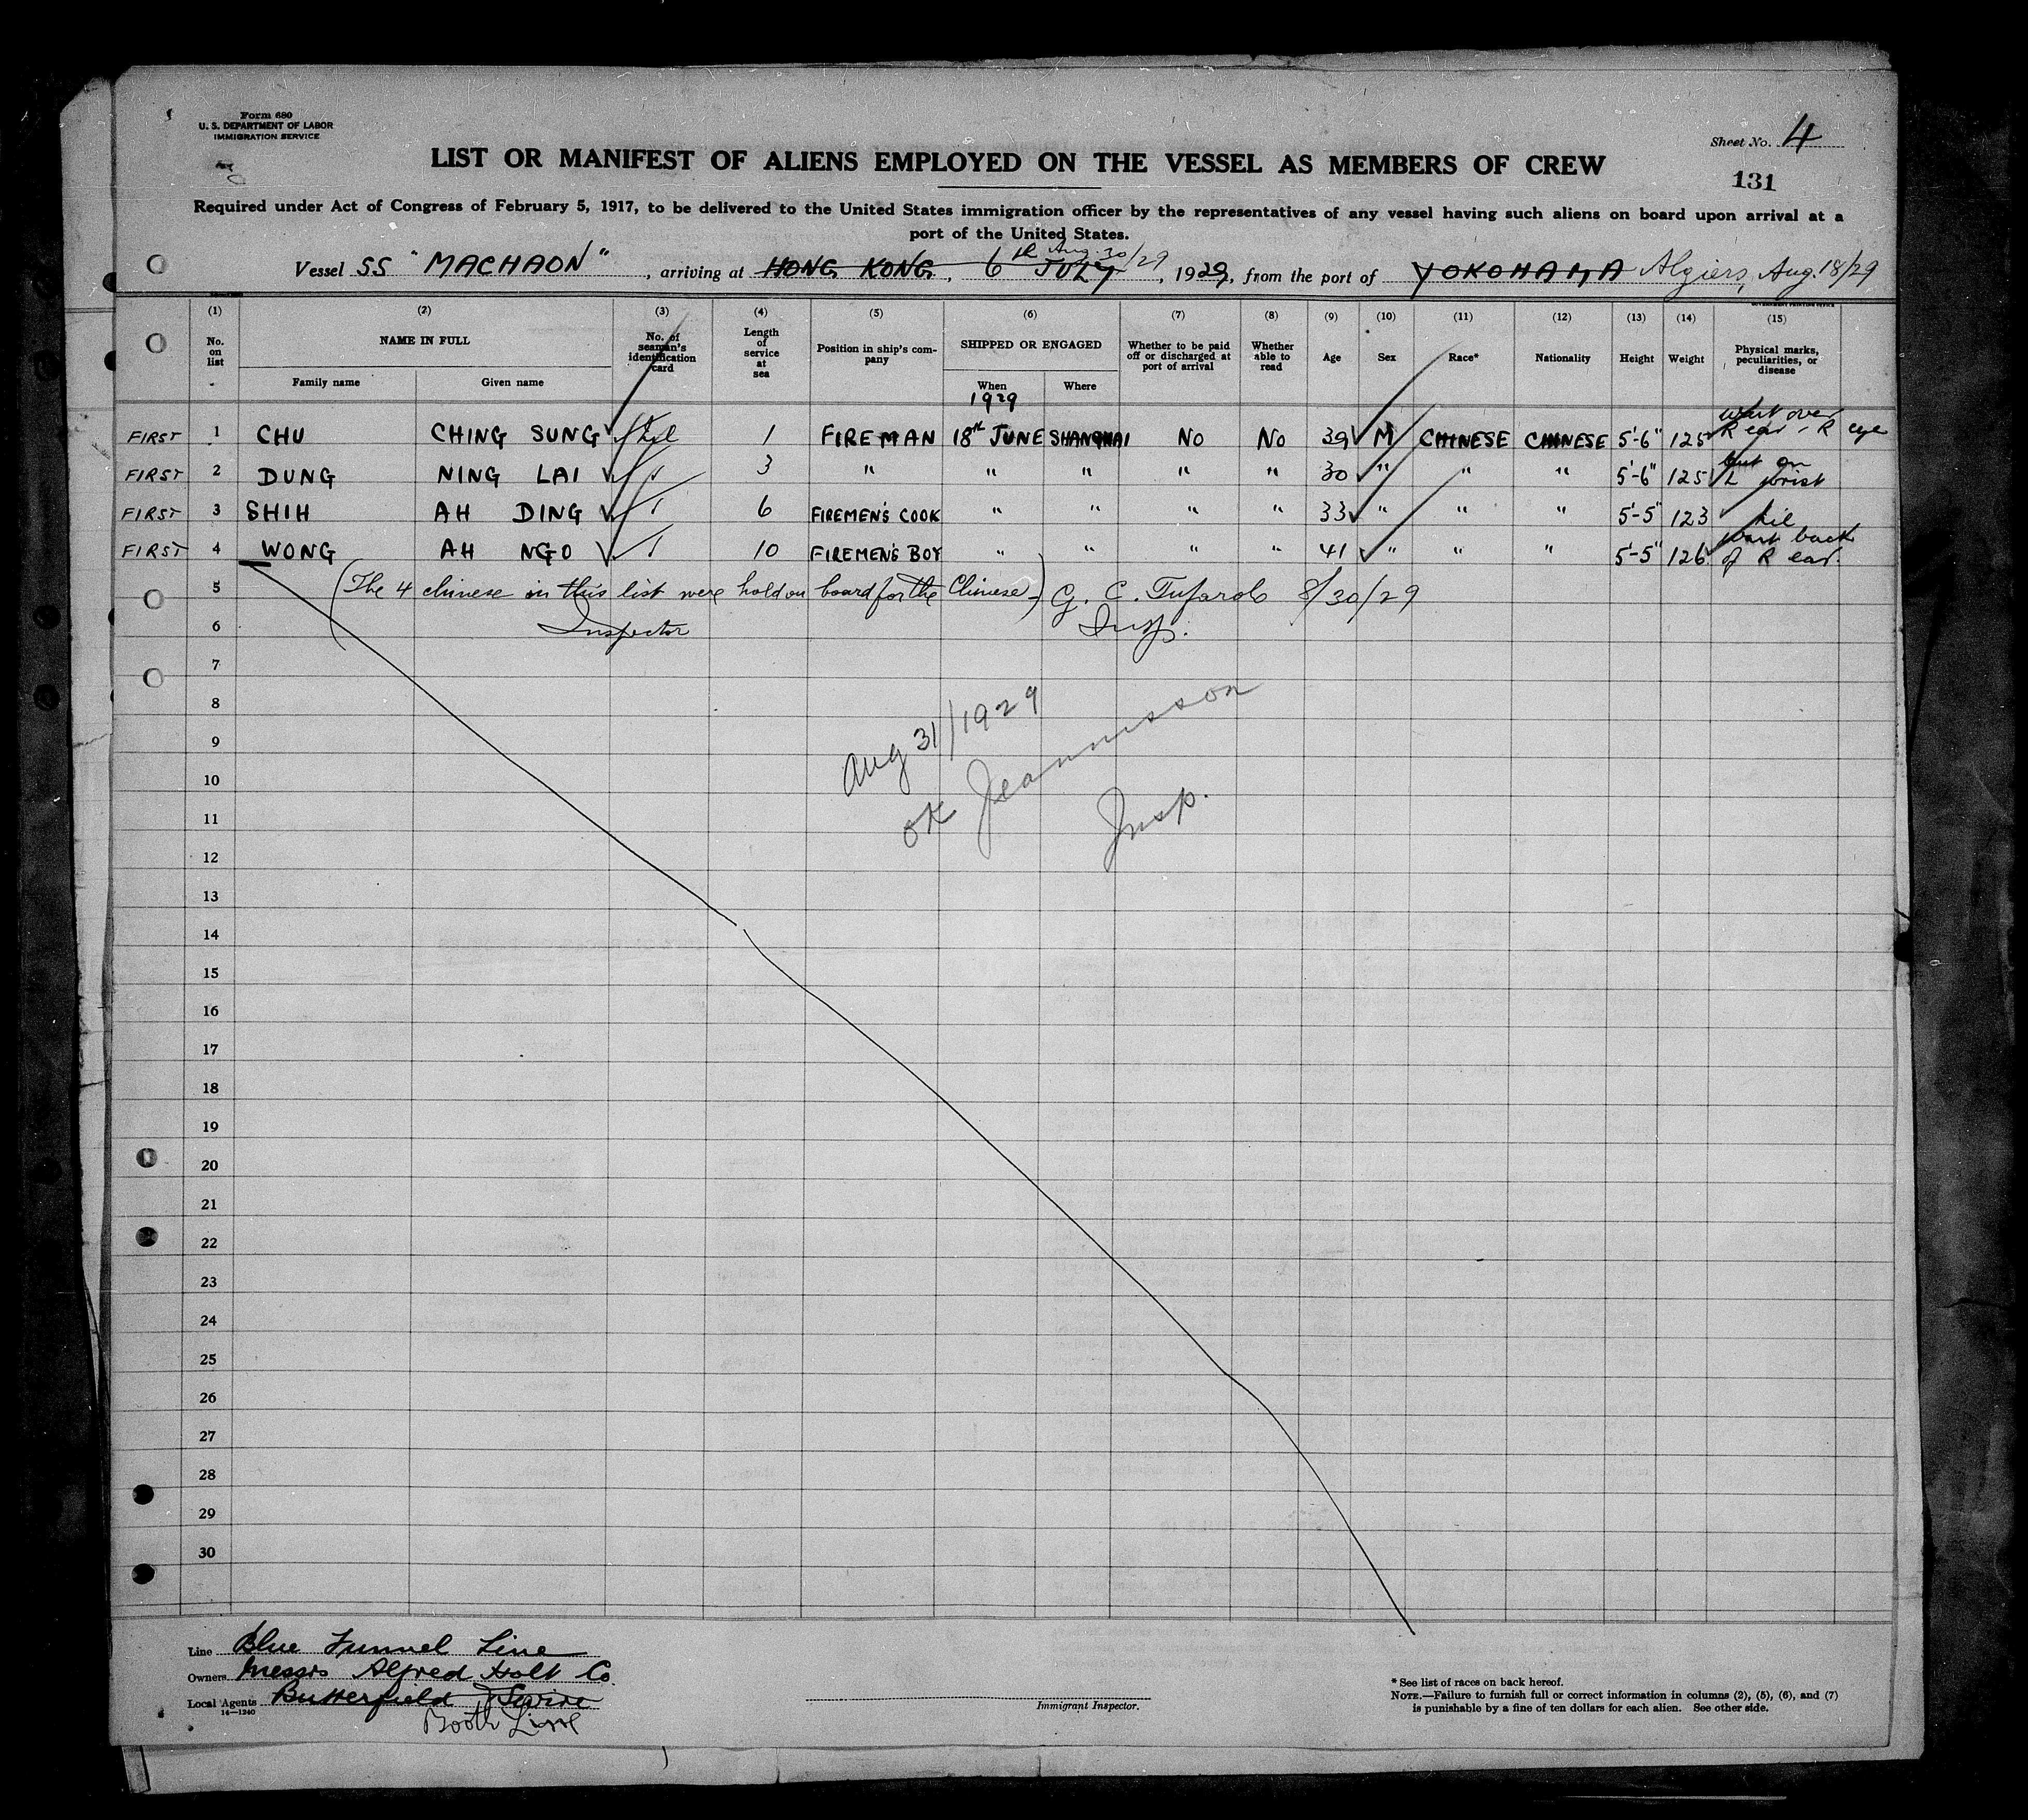 Form 680
U. S. DEPARTMENT OF LABOR
IMMIGRATION SERVICE
Sheet No. 4
LIST OR MANIFEST OF ALIENS EMPLOYED ON THE VESSEL AS MEMBERS OF CREW
131
Required under Act of Congress of February 5, 1917, to be delivered to the United States immigration officer by the representatives of any vessel having such aliens on board upon arrival at a
port of the United States.
Aug. 30/29
Vessel SS "MACHAON", arriving at HONG KONG, 6th JULY, 1929, from the port of YOKOHAMA Algiers, Aug. 18/29
(1) (2) (3) (4) (5) (6) (7) (8) (9) (10) (11) (12) (13) (14) (15)
No. on list NAME IN FULL No. of seaman's identification card Length of service at sea Position in ship's company SHIPPED OR ENGAGED Whether to be paid off or discharged at port of arrival Whether able to read Age Sex Race* Nationality Height Weight Physical marks, peculiarities, or disease
Family name Given name When Where
1929
FIRST 1 CHU CHING SUNG 1 FIREMAN 18th JUNE SHANGHAI No No 39 M CHINESE CHINESE 5'-6" 125 wart over R ear - R eye
FIRST 2 DUNG NING LAI 3 " " " " " 30 " " " 5'-6" 125 on L wrist
FIRST 3 SHIH AH DING 6 FIREMEN'S COOK " " " " 33 " " " 5'-5" 123 Nil
FIRST 4 WONG AH NGO 10 FIREMEN'S BOY " " " " 41 " " " 5'-5" 126 wart back of R ear.
5 (The 4 chinese in this list were held on board for the Chinese) G. C. 8/30/29
6 Inspector Insp.
7
8
Aug 31/1929
9
10
OK Insp.
11
12
13
14
15
16
17
18
19
20
21
22
23
24
25
26
27
28
29
30
Line Blue Funnel Line
Owners Messrs Alfred Holt Co.
Local Agents Butterfield & Swire
14—1240
Booth Line
Immigrant Inspector.
* See list of races on back hereof.
NOTE.—Failure to furnish full or correct information in columns (2), (5), (6), and (7)
is punishable by a fine of ten dollars for each alien. See other side.